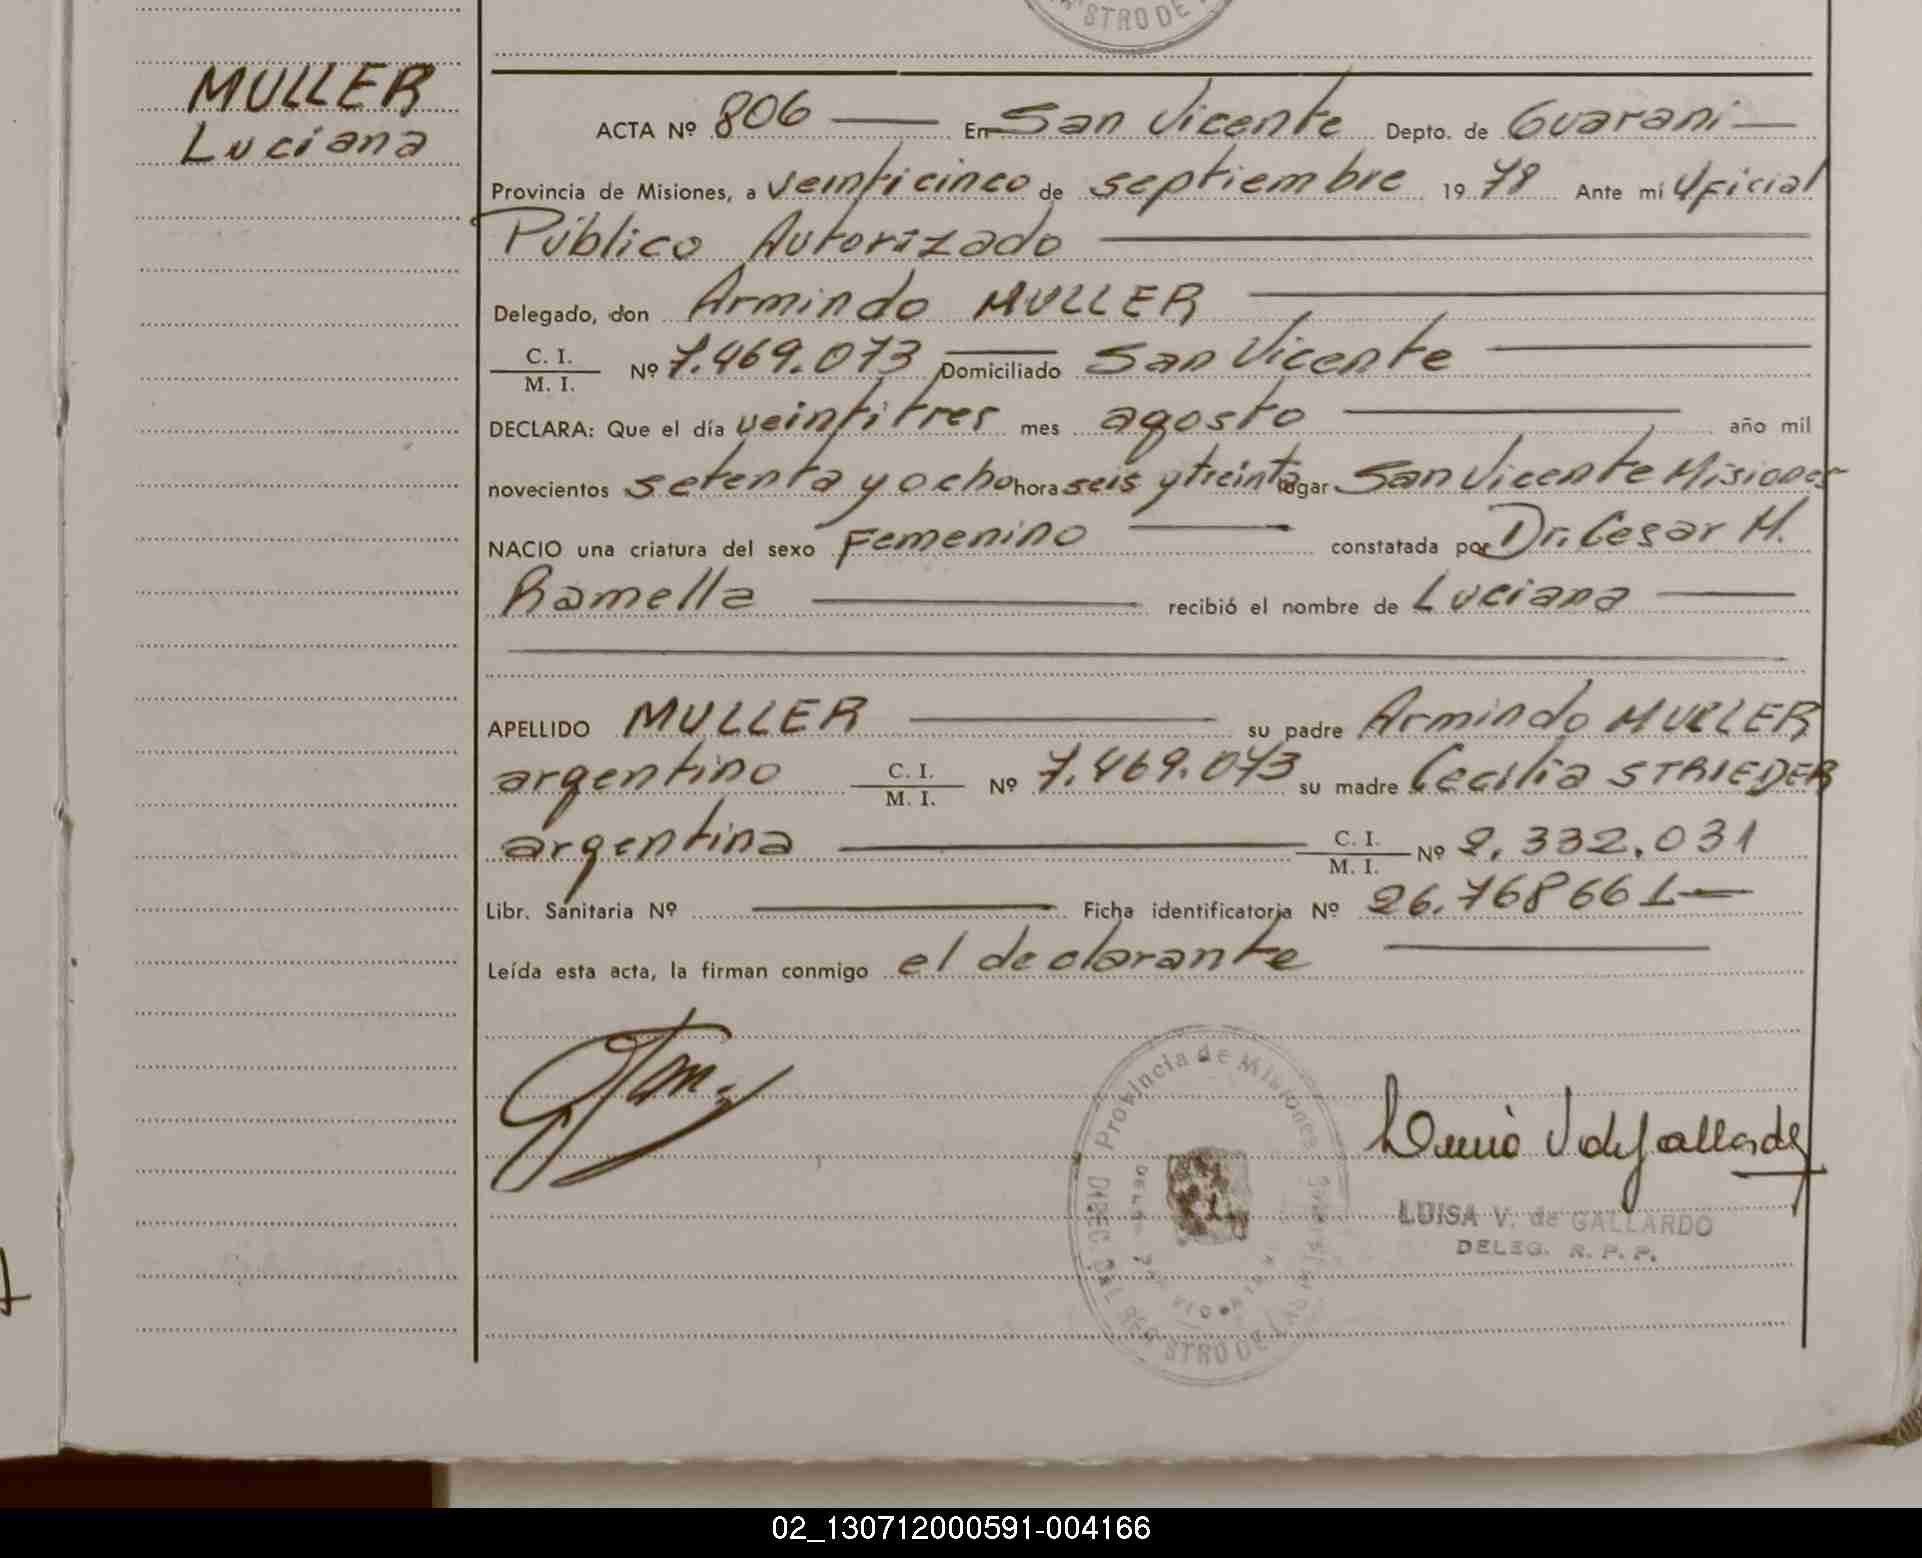 STRO DE
MULLER
Luciana
ACTA Nº 806 En San Vicente Depto. de Guarani
Provincia de Misiones, a veinticinco de septiembre 19 78 Ante mí Oficial
Público Autorizado
Delegado, don Armindo MULLER
C. I.
M. I. Nº 7.469.073 Domiciliado San Vicente
DECLARA: Que el día veintitres mes agosto año mil
novecientos setenta y ocho hora seis y treinta lugar San Vicente Misiones
NACIO una criatura del sexo Femenino constatada por Dr. Cesar M.
Ramella recibió el nombre de Luciana
APELLIDO MULLER su padre Armindo MULLER
argentino C. I. M. I. Nº 7.469.073 su madre Cecilia STRIEDER
argentina C. I. M. I. Nº 2.332.031
Libr. Sanitaria Nº Ficha identificatoria Nº 26.768661
Leída esta acta, la firman conmigo el declarante
Provincia de Misiones
DIREC. GRAL REGISTRO DE LAS
LUISA V. de GALLARDO
DELEG. R. P. P.
02_130712000591-004166